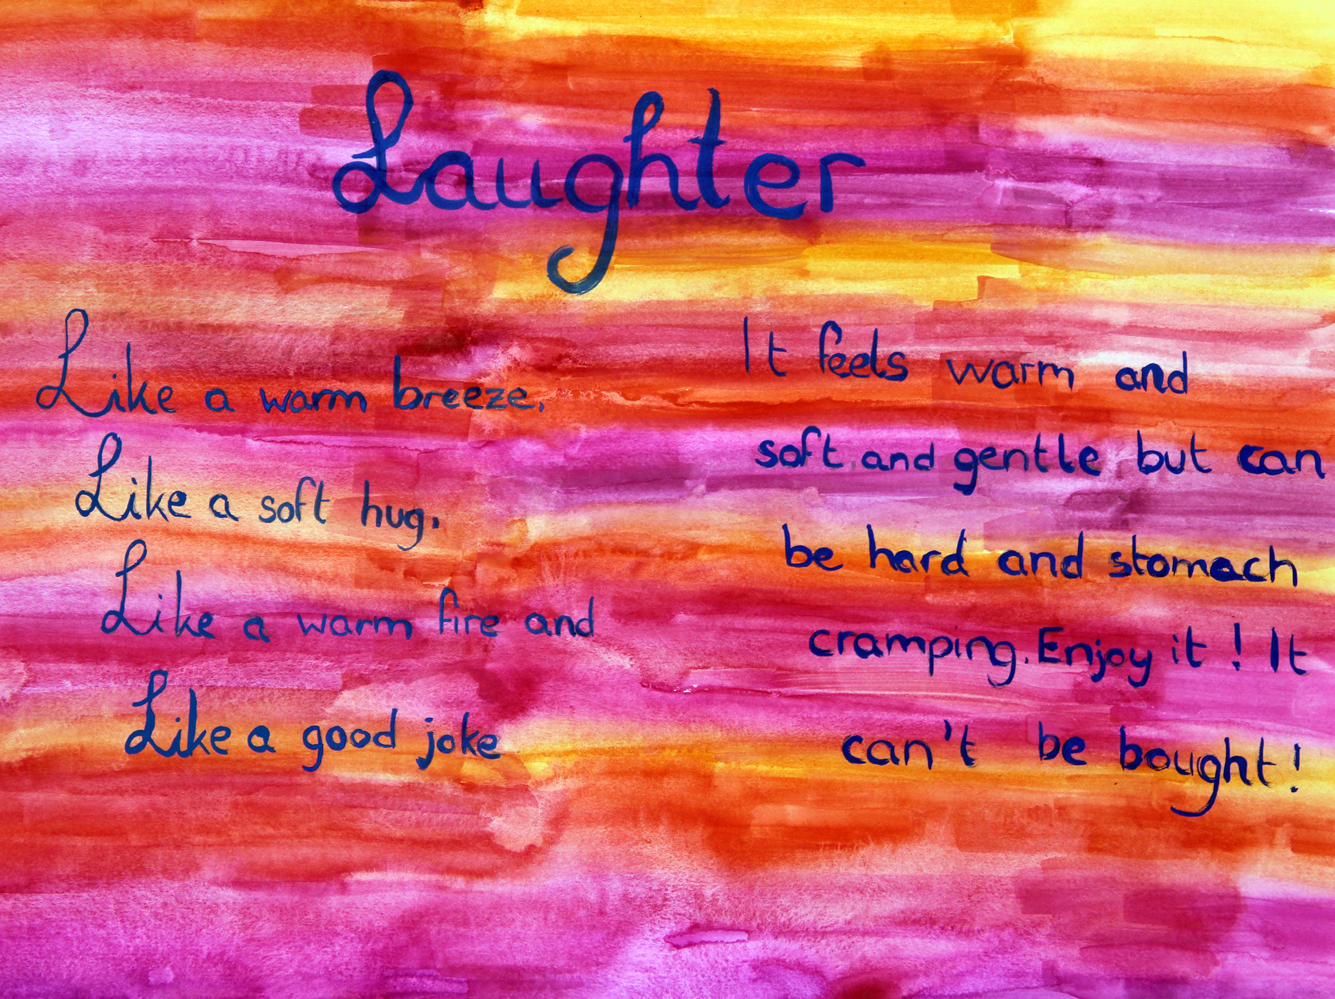 Laughter
Like a warm breeze,
Like a soft hug,
Like a warm fire and
Like a good joke
It feels warm and
soft and gentle but can
be hard and stomach
cramping. Enjoy it! It
can't be bought!